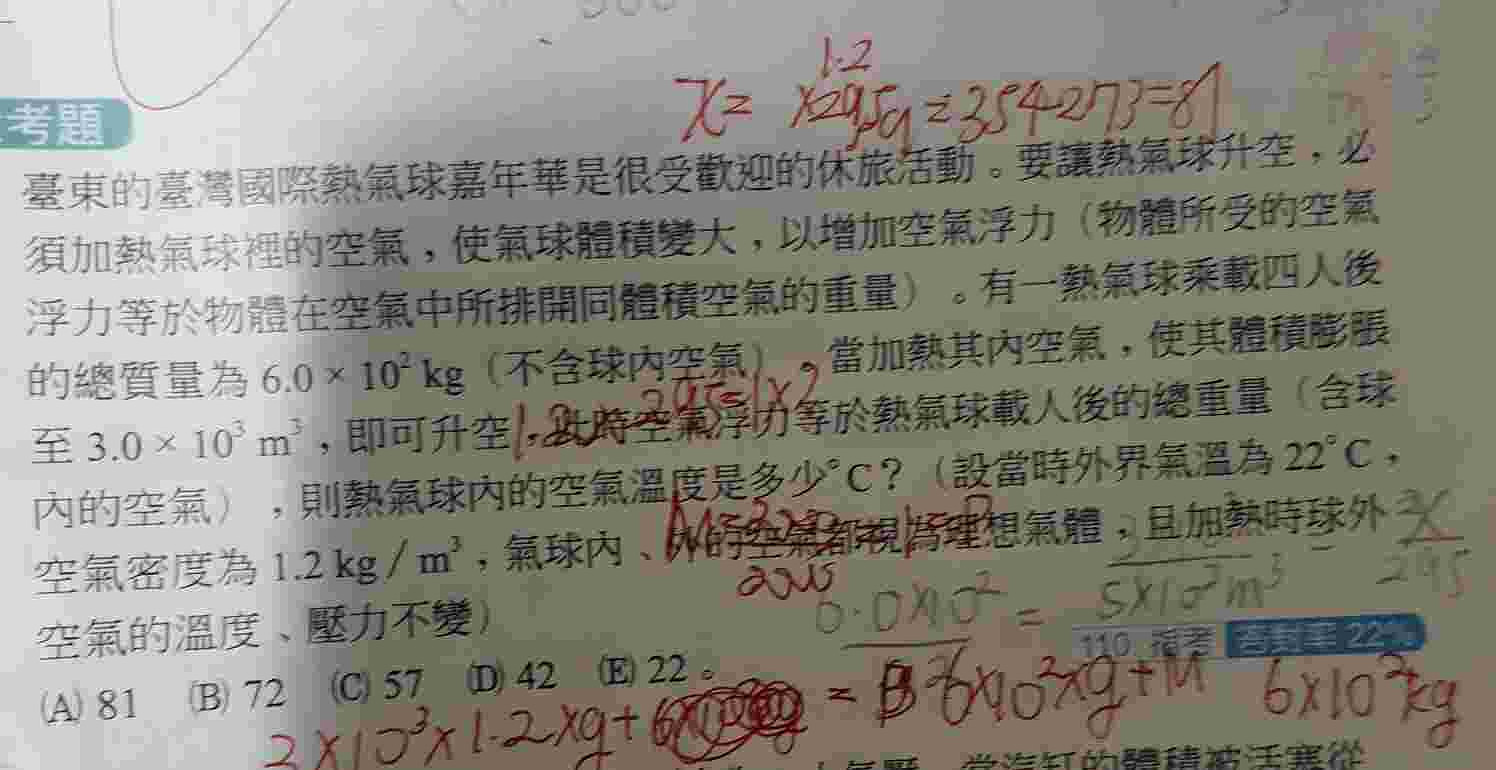 x = 1.2 × 295 = 354-273=81
考題
臺東的臺灣國際熱氣球嘉年華是很受歡迎的休旅活動。要讓熱氣球升空，必
須加熱氣球裡的空氣，使氣球體積變大，以增加空氣浮力（物體所受的空氣
浮力等於物體在空氣中所排開同體積空氣的重量）。有一熱氣球乘載四人後
的總質量為 6.0 × 10² kg（不含球內空氣）。當加熱其內空氣，使其體積膨脹
至 3.0 × 10³ m³，即可升空，此時空氣浮力等於熱氣球載人後的總重量（含球
內的空氣），則熱氣球內的空氣溫度是多少°C？（設當時外界氣溫為 22°C，
空氣密度為 1.2 kg / m³，氣球內、外的空氣都視為理想氣體，且加熱時球外
空氣的溫度、壓力不變）
6.0×10² = 5×10² m³ = x 295
110. 指考 答對率 22%
(A) 81 (B) 72 (C) 57 (D) 42 (E) 22。
3×10³×1.2×g = 6×10²×g+M 6×10² kg